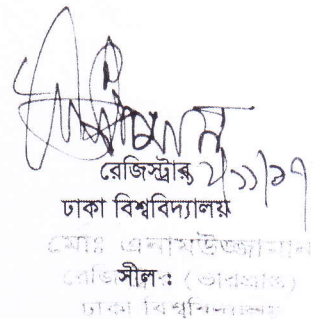 রেজিস্ট্রার ২/১১/১৭
ঢাকা বিশ্ববিদ্যালয়
মোঃ এনামউজ্জামান
রেজিস্ট্রার (ভারপ্রাপ্ত)
সীল:
ঢাকা বিশ্ববিদ্যালয়